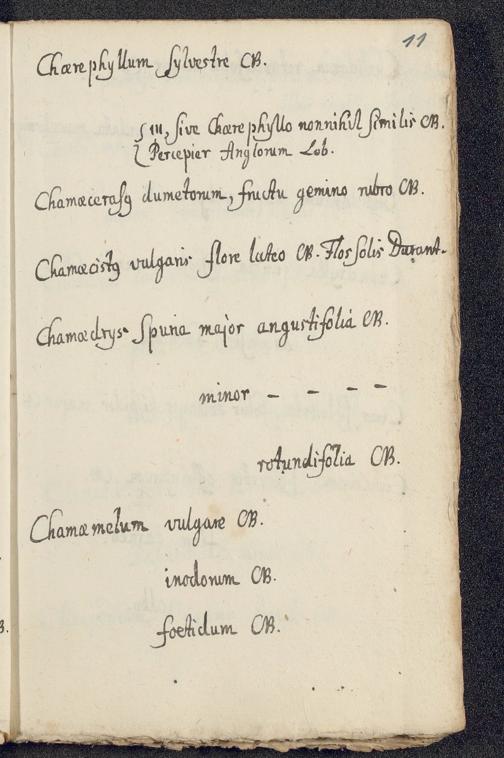 11
Chærephyllum sylvestre CB.
III, sive Chærephyllo nonnihil similis CB.
Percepier Anglorum Lob.
Chamæcerasꝰ dumetorum, fructu gemino rubro CB.
Chamæcistꝰ vulgaris flore luteo CB. Flos solis Durant.
Chamædrys Spuria major angustifolia CB.
minor – – – –
rotundifolia CB.
Chamæmelum vulgare CB.
inodorum CB.
foetidum CB.